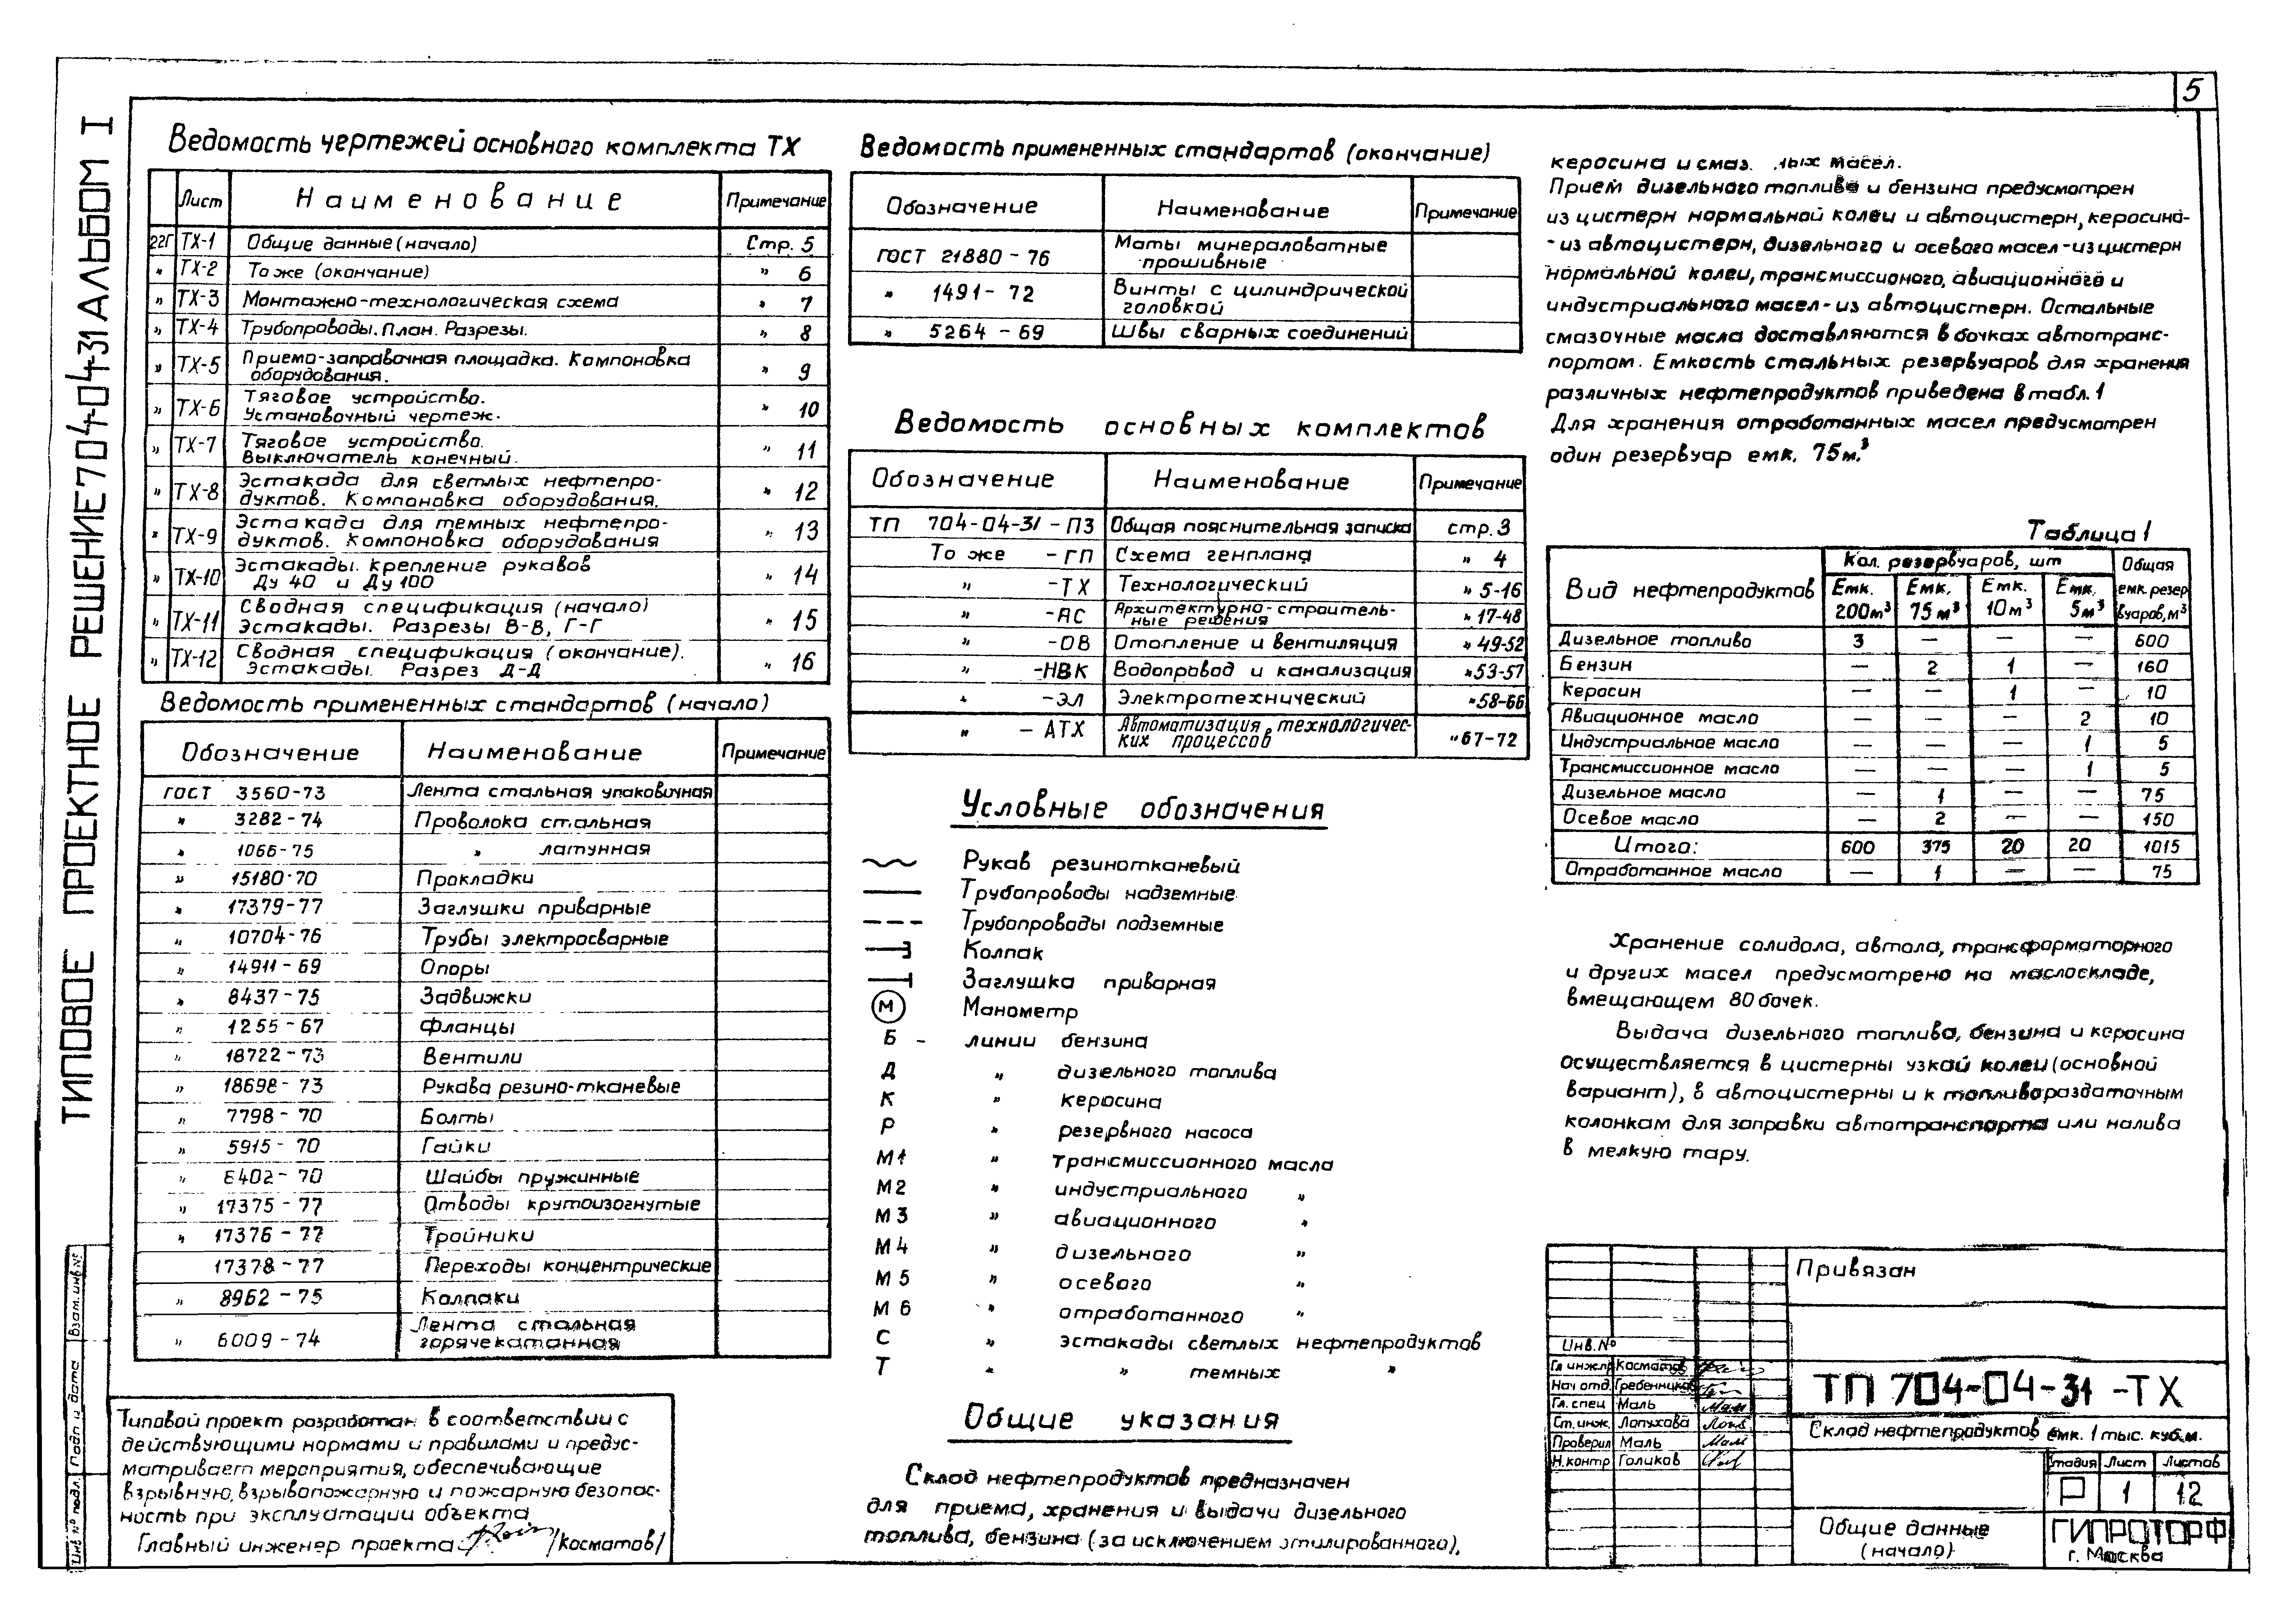 5
ТИПОВОЕ ПРОЕКТНОЕ РЕШЕНИЕ 704-04-31 АЛЬБОМ I
Ведомость чертежей основного комплекта ТХ
Лист Наименование Примечание
22Г ТХ-1 Общие данные (начало) Стр. 5
" ТХ-2 То же (окончание) " 6
" ТХ-3 Монтажно-технологическая схема " 7
" ТХ-4 Трубопроводы. План. Разрезы. " 8
" ТХ-5 Приемо-заправочная площадка. Компоновка
оборудования. " 9
" ТХ-6 Тяговое устройство.
Установочный чертеж. " 10
" ТХ-7 Тяговое устройство.
Выключатель конечный. " 11
" ТХ-8 Эстакада для светлых нефтепро-
дуктов. Компоновка оборудования. " 12
" ТХ-9 Эстакада для темных нефтепро-
дуктов. Компоновка оборудования " 13
" ТХ-10 Эстакады. Крепление рукавов
Ду 40 и Ду 100 " 14
" ТХ-11 Сводная спецификация (начало)
Эстакады. Разрезы В-В, Г-Г " 15
" ТХ-12 Сводная спецификация (окончание).
Эстакады. Разрез Д-Д " 16
Ведомость примененных стандартов (начало)
Обозначение Наименование Примечание
ГОСТ 3560-73 Лента стальная упаковочная
" 3282-74 Проволока стальная
" 1066-75 " латунная
" 15180-70 Прокладки
" 17379-77 Заглушки приварные
" 10704-76 Трубы электросварные
" 14911-69 Опоры
" 8437-75 Задвижки
" 1255-67 Фланцы
" 18722-73 Вентили
" 18698-73 Рукава резино-тканевые
" 7798-70 Болты
" 5915-70 Гайки
" 6402-70 Шайбы пружинные
" 17375-77 Отводы крутоизогнутые
" 17376-77 Тройники
17378-77 Переходы концентрические
" 8962-75 Колпаки
" 6009-74 Лента стальная
горячекатанная
Типовой проект разработан в соответствии с
действующими нормами и правилами и предус-
матривает мероприятия, обеспечивающие
взрывную, взрывопожарную и пожарную безопас-
ность при эксплуатации объекта
Главный инженер проекта /Косматов/
Взам. инв №
Подп и дата
Инв № подл.
Ведомость примененных стандартов (окончание)
Обозначение Наименование Примечание
ГОСТ 21880-76 Маты минераловатные
прошивные
" 1491-72 Винты с цилиндрической
головкой
" 5264-69 Швы сварных соединений
Ведомость основных комплектов
Обозначение Наименование Примечание
ТП 704-04-31-ПЗ Общая пояснительная записка стр. 3
То же -ГП Схема генплана " 4
" -ТХ Технологический " 5-16
" -АС Архитектурно-строитель-
ные решения " 17-48
" -ОВ Отопление и вентиляция " 49-52
" -НВК Водопровод и канализация " 53-57
" -ЭЛ Электротехнический " 58-66
" -АТХ Автоматизация технологичес-
ких процессов " 67-72
Условные обозначения
Рукав резинотканевый
Трубопроводы надземные
Трубопроводы подземные
Колпак
Заглушка приварная
М Манометр
Б - линии бензина
Д " дизельного топлива
К " керосина
Р " резервного насоса
М1 " трансмиссионного масла
М2 " индустриального "
М3 " авиационного "
М4 " дизельного "
М5 " осевого "
М6 " отработанного "
С " эстакады светлых нефтепродуктов
Т " " темных "
Общие указания
Склад нефтепродуктов предназначен
для приема, хранения и выдачи дизельного
топлива, бензина (за исключением этилированного),
керосина и смаз. ных масел.
Прием дизельного топлива и бензина предусмотрен
из цистерн нормальной колеи и автоцистерн, керосина-
-из автоцистерн, дизельного и осевого масел-из цистерн
нормальной колеи, трансмиссионого, авиационного и
индустриального масел-из автоцистерн. Остальные
смазочные масла доставляются в бочках автотранс-
портом. Емкость стальных резервуаров для хранения
различных нефтепродуктов приведена в табл. 1
Для хранения отработанных масел предусмотрен
один резервуар емк. 75м.³
Таблица 1
Вид нефтепродуктов Кол. резервуаров, шт Общая емк. резервуаров, м³
Емк. 200м³ Емк. 75м³ Емк. 10м³ Емк. 5м³
Дизельное топливо 3 — — — 600
Бензин — 2 1 — 160
Керосин — — 1 — 10
Авиационное масло — — — 2 10
Индустриальное масло — — — 1 5
Трансмиссионное масло — — — 1 5
Дизельное масло — 1 — — 75
Осевое масло — 2 — — 150
Итого: 600 375 20 20 1015
Отработанное масло — 1 — — 75
Хранение солидола, автола, трансформаторного
и других масел предусмотрено на маслоскладе,
вмещающем 80 бочек.
Выдача дизельного топлива, бензина и керосина
осуществляется в цистерны узкой колеи (основной
вариант), в автоцистерны и к топливораздаточным
колонкам для заправки автотранспорта или налива
в мелкую тару.
Привязан
Инв. №
Гл инж.пр Косматов
Нач отд. Гребенников
Гл. спец Маль
Ст. инж. Лопухова
Проверил Маль
Н.контр Голиков
ТП 704-04-31-ТХ
Склад нефтепродуктов емк. 1 тыс. куб.м.
Стадия Лист Листов
Р 1 12
Общие данные
(начало)
ГИПРОТОРФ
г. Москва